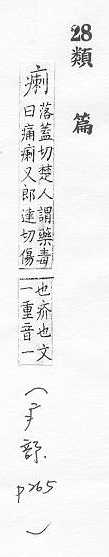 28類篇
瘌
落蓋切楚人謂藥毒
曰痛瘌又郎達切傷
也疥也文
一重音一
(疒部.
p265
)